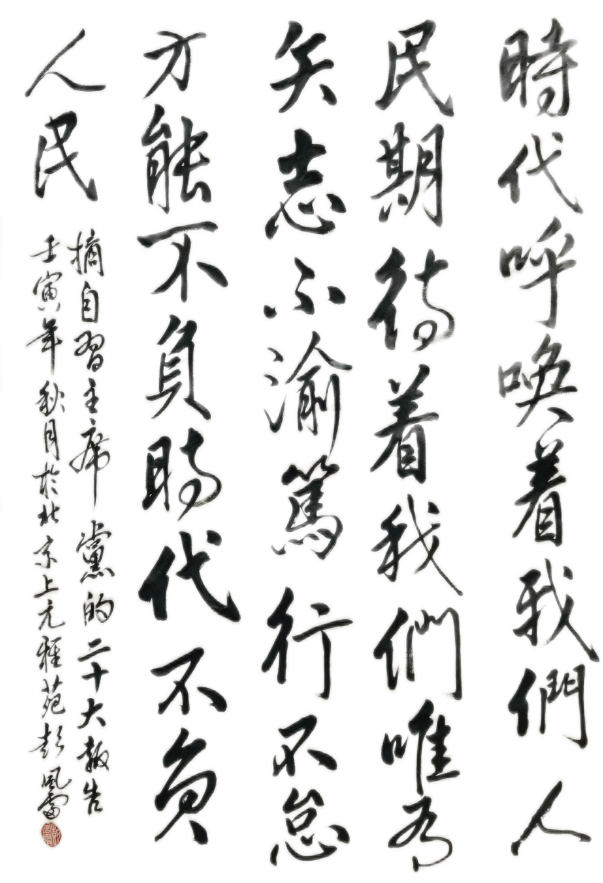 時代呼唤着我們人
民期待着我們唯有
矢志不渝篤行不怠
方能不負時代不負
人民
摘自習主席黨的二十大報告
壬寅年秋月於北京上元雅苑彭風雷